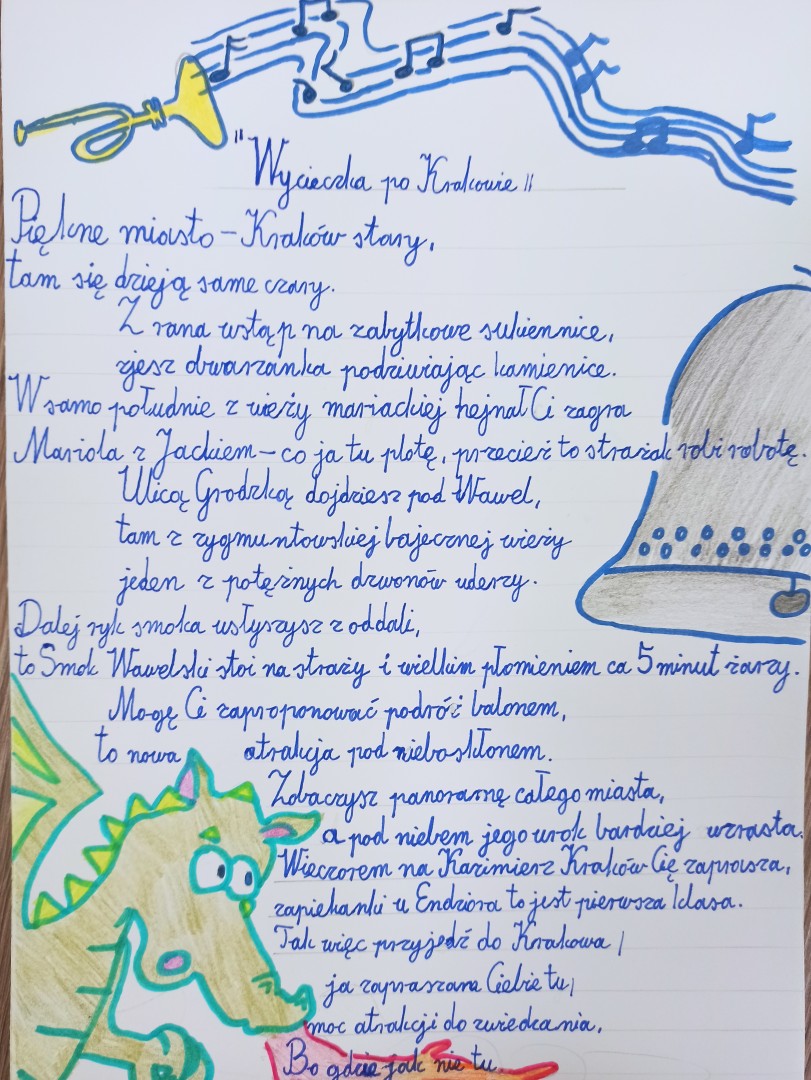 "Wycieczka po Krakowie"
Piękne miasto – Kraków stary,
tam się dzieją same czary.
Z rana wstąp na zabytkowe sukiennice,
zjesz obwarzanka podziwiając kamienice.
W samo południe z wieży mariackiej hejnał Ci zagra
Mariola z Jackiem – co ja tu plotę, przecież to strażak robi robotę.
Ulicą Grodzką dojdziesz pod Wawel,
tam z zygmuntowskiej bajecznej wieży
jeden z potężnych dzwonów uderzy.
Dalej ryk smoka usłyszysz z oddali,
to Smok Wawelski stoi na straży i wielkim płomieniem co 5 minut żarzy.
Mogę Ci zaproponować podróż balonem,
to nowa atrakcja pod nieboskłonem.
Zobaczysz panoramę całego miasta,
a pod niebem jego urok bardziej wzrasta.
Wieczorem na Kazimierz Kraków Cię zaprasza,
zapiekanki u Endziora to jest pierwsza klasa.
Tak więc przyjedź do Krakowa,
ja zapraszam Ciebie tu,
moc atrakcji do zwiedzania,
Bo gdzie jak nie tu.